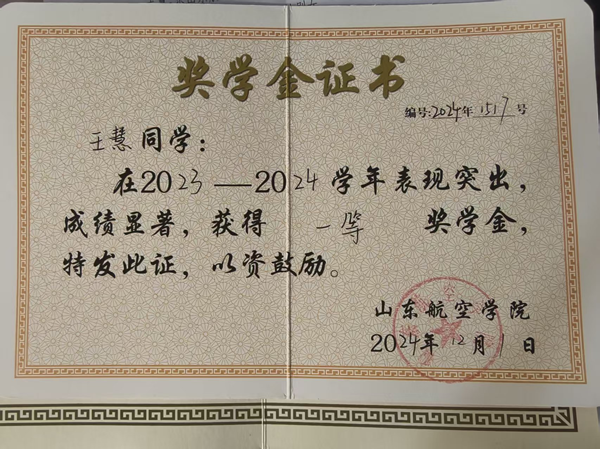 奖学金证书
编号:2024年1517号
王慧同学：
在2023—2024学年表现突出，
成绩显著，获得 一等 奖学金，
特发此证，以资鼓励。
山东航空学院
2024年12月1日